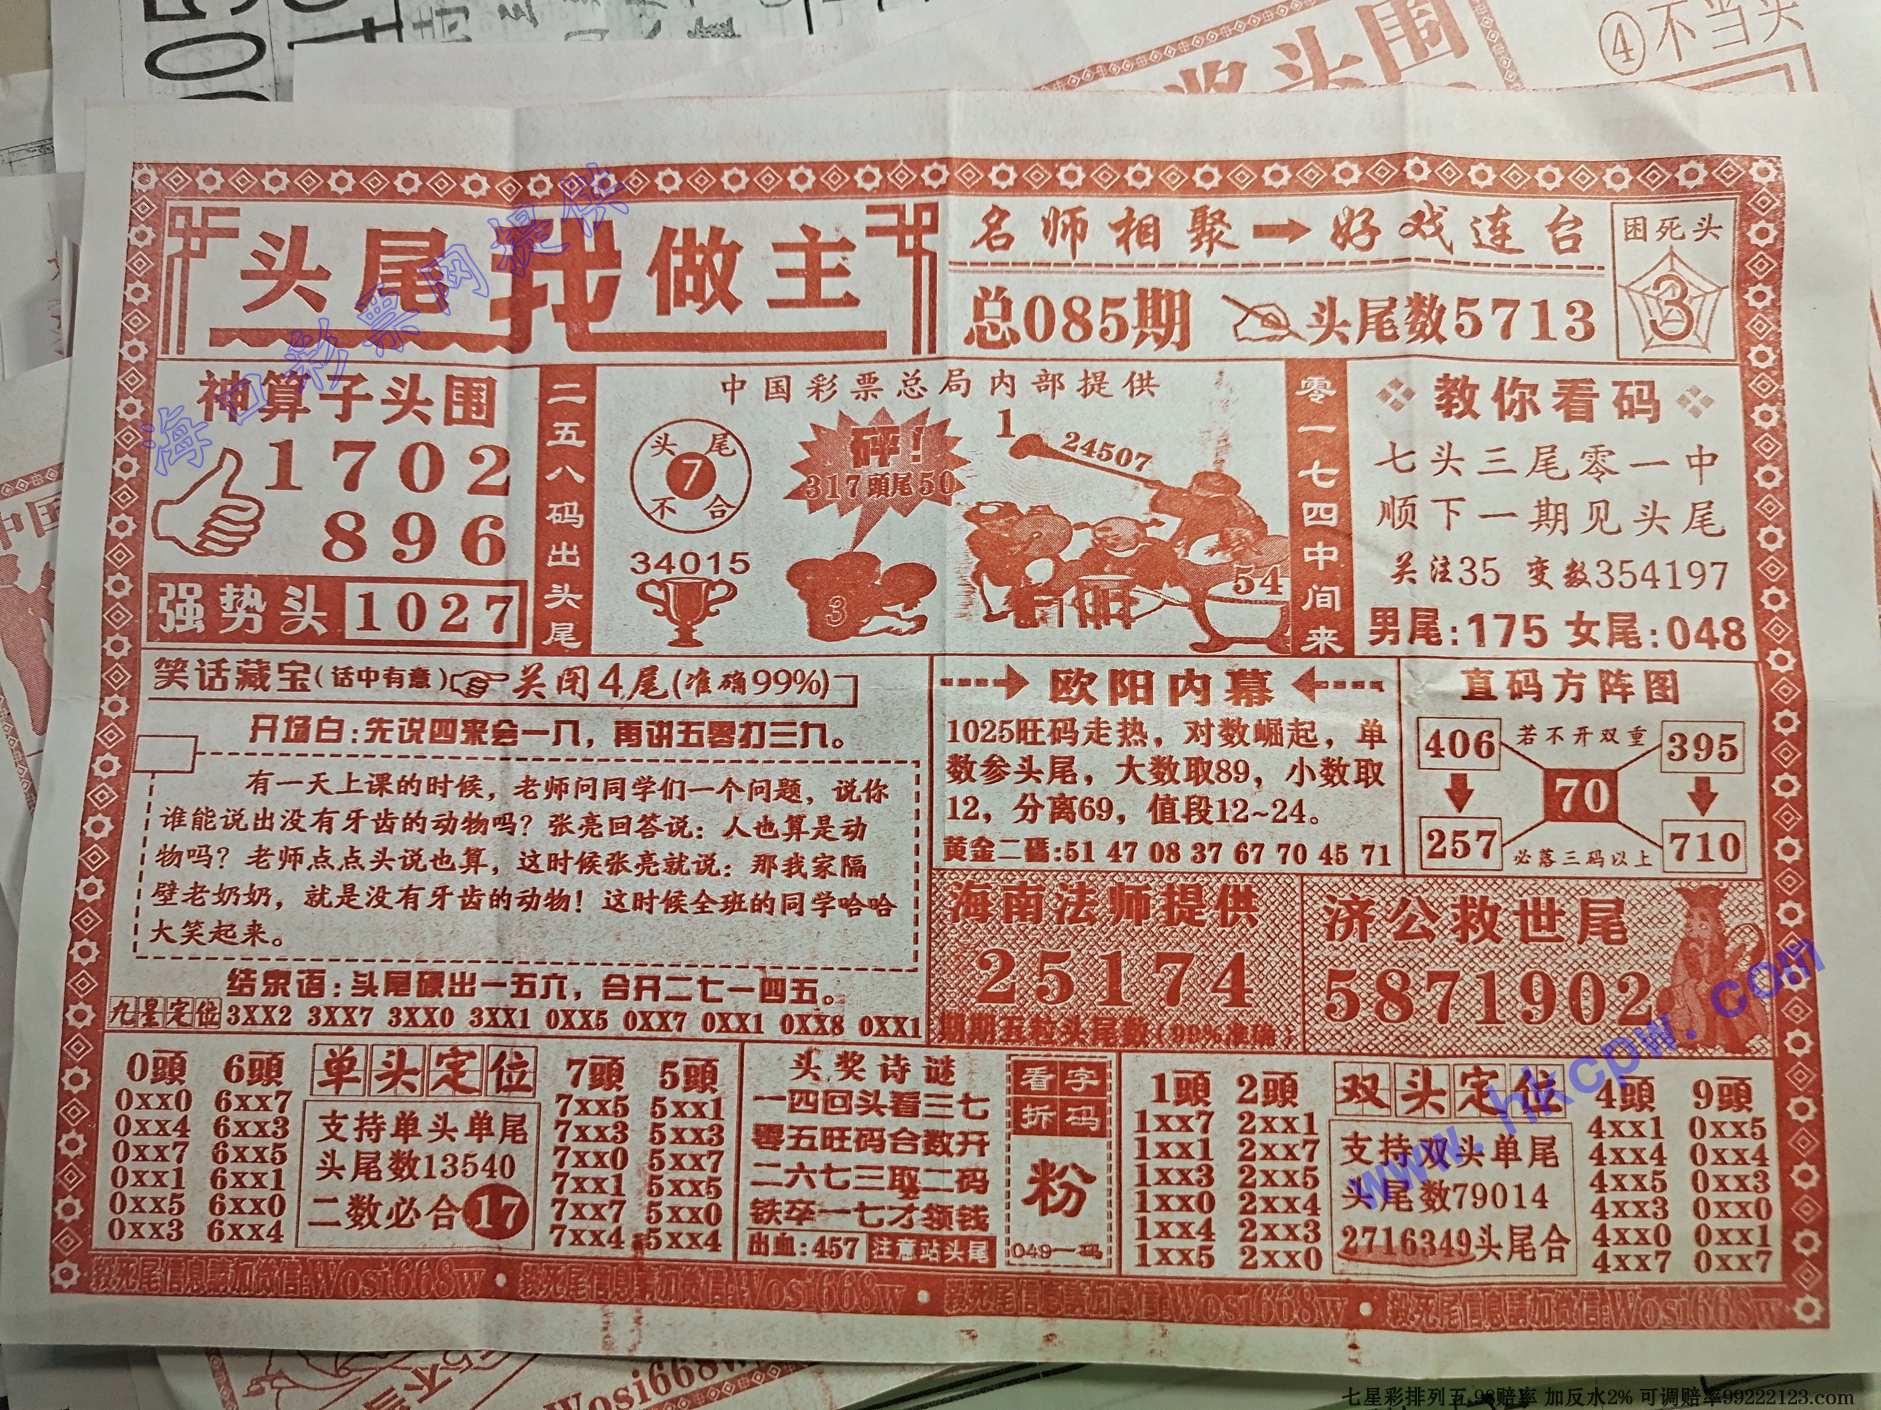 ④不当头
奖头围
头尾我做主
名师相聚→好戏连台
总085期
头尾数5713
困死头
3
神算子头围
1702
896
强势头 1027
二五八码出头尾
中国彩票总局内部提供
头尾
7
不合
34015
砰！
317頭尾50
3
1
24507
54
零一七四中间来
教你看码
七头三尾零一中
顺下一期见头尾
关注35 变数354197
男尾:175 女尾:048
笑话藏宝(话中有意) 关闭4尾(准确99%)
开场白:先说四来会一八，再讲五零打三九。
有一天上课的时候，老师问同学们一个问题，说你
谁能说出没有牙齿的动物吗？张亮回答说：人也算是动
物吗？老师点点头说也算，这时候张亮就说：那我家隔
壁老奶奶，就是没有牙齿的动物！这时候全班的同学哈哈
大笑起来。
结束语:头尾硬出一五六，合开二七一四五。
九星定位 3XX2 3XX7 3XX0 3XX1 0XX5 0XX7 0XX1 0XX8 0XX1
欧阳内幕
1025旺码走热，对数崛起，单
数参头尾，大数取89，小数取
12，分离69，值段12~24。
黄金二碼:51 47 08 37 67 70 45 71
直码方阵图
406 若不开双重 395
70
257 必落三码以上 710
海南法师提供
25174
期期五粒头尾数(99%准确)
济公救世尾
5871902
0頭 6頭
0xx0 6xx7
0xx4 6xx3
0xx7 6xx5
0xx1 6xx1
0xx5 6xx0
0xx3 6xx4
单头定位
支持单头单尾
头尾数13540
二数必合17
7頭 5頭
7xx5 5xx1
7xx3 5xx3
7xx0 5xx7
7xx1 5xx5
7xx7 5xx0
7xx4 5xx4
头奖诗谜
一四回头看三七
零五旺码合数开
二六七三取二码
铁卒一七才领钱
出血:457 注意站头尾
看字
拆码
粉
049一码
1頭 2頭
1xx7 2xx1
1xx1 2xx4
1xx3 2xx5
1xx0 2xx4
1xx4 2xx3
1xx5 2xx0
双头定位
支持双头单尾
头尾数79014
2716349头尾合
4頭 9頭
4xx1 0xx5
4xx4 0xx4
4xx5 0xx3
4xx3 0xx0
4xx0 0xx1
4xx7 0xx7
杀死尾信息请加微信:Wosi668w • 杀死尾信息请加微信:Wosi668w • 杀死尾信息请加微信:Wosi668w • 杀死尾信息请加微信:Wosi668w
Wosi668w
海口彩票网提供
www.hkcpw.com
七星彩排列五,98赔率 加反水2% 可调赔率99222123.com